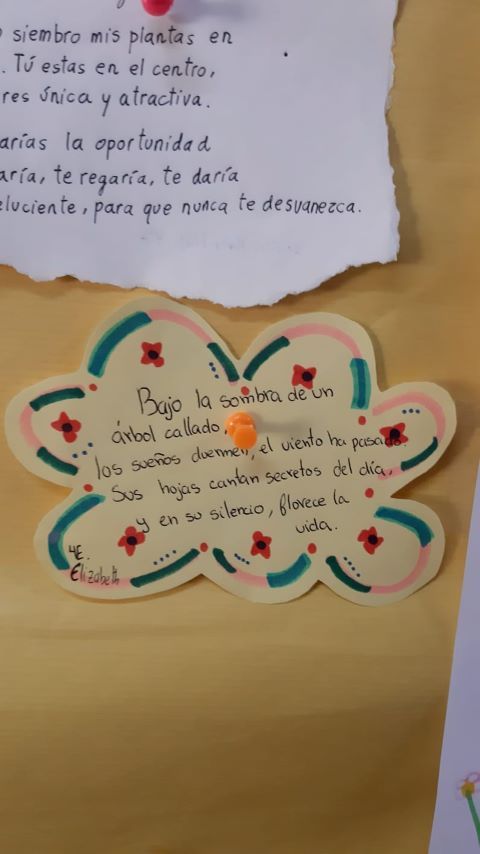 siembro mis plantas en
. Tú estas en el centro,
res única y atractiva.
arías la oportunidad
aría, te regaría, te daría
eluciente, para que nunca te desvanezca.
Bajo la sombra de un
árbol callado
los sueños duermen, el viento ha pasado.
Sus hojas cantan secretos del día,
y en su silencio, florece la
vida.
4E.
Elizabeth